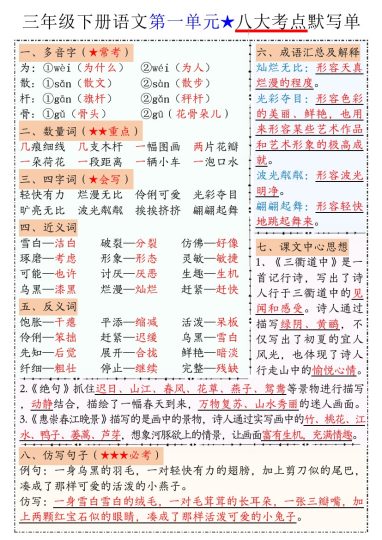 三年级下册语文第一单元★八大考点默写单
一、多音字（★常考）
为：①wèi（为什么）　②wéi（为人）
散：①sǎn（散文）　②sàn（散步）
杆：①gān（旗杆）　②gǎn（秤杆）
骨：①gǔ（骨头）　②gū（花骨朵儿）
二、数量词（★★重点）
几痕细线　几支木杆　一幅图画　两片花瓣
一朵荷花　一段距离　一辆小车　一泡口水
三、四字词（★会写）
轻快有力　烂漫无比　伶俐可爱　光彩夺目
旷亮无比　波光粼粼　挨挨挤挤　翩翩起舞
四、近义词
雪白—洁白　破裂—分裂　仿佛—好像
琢磨—考虑　形象—形态　灵敏—敏捷
可能—也许　讨厌—厌恶　生趣—生机
乌黑—漆黑　烂漫—灿烂　赶紧—赶快
五、反义词
饱胀—干瘪　平添—缩减　活泼—呆板
伶俐—笨拙　赶紧—迟缓　乌黑—雪白
先知—后觉　展开—合拢　鲜艳—暗淡
纤细—粗壮　停止—继续　完整—残缺
六、成语汇总及解释
灿烂无比：形容天真烂漫的程度。
光彩夺目：形容色彩的美丽、鲜艳，也用来形容某些艺术作品和艺术形象的极高成就。
波光粼粼：形容波光明净。
翩翩起舞：形容轻快地跳起舞来。
七、课文中心思想
1、《三衢道中》是一首记行诗，写出了诗人行于三衢道中的见闻和感受。诗人通过描写绿阴、黄鹂，不仅写出了初夏的宜人风光，也体现了诗人行走山中的愉悦心情。
2.《绝句》抓住迟日、山江、春风、花草、燕子、鸳鸯等景物进行描写，动静结合，描绘了一幅春天到来，万物复苏、山水秀丽的迷人画面。
3.《惠崇春江晚景》描写的是画中的景物，诗人通过实写画中的竹、桃花、江水、鸭子、蒌蒿、芦芽，想象河豚欲上的情景，让画面富有生机，充满情趣。
八、仿写句子（★★★必考）
例句：一身乌黑的羽毛，一对轻快有力的翅膀，加上剪刀似的尾巴，凑成了那样可爱的活泼的小燕子。
仿写：一身雪白雪白的绒毛，一对毛茸茸的长耳朵，一张三瓣嘴，加上两颗红宝石似的眼睛，凑成了那样活泼可爱的小兔子。